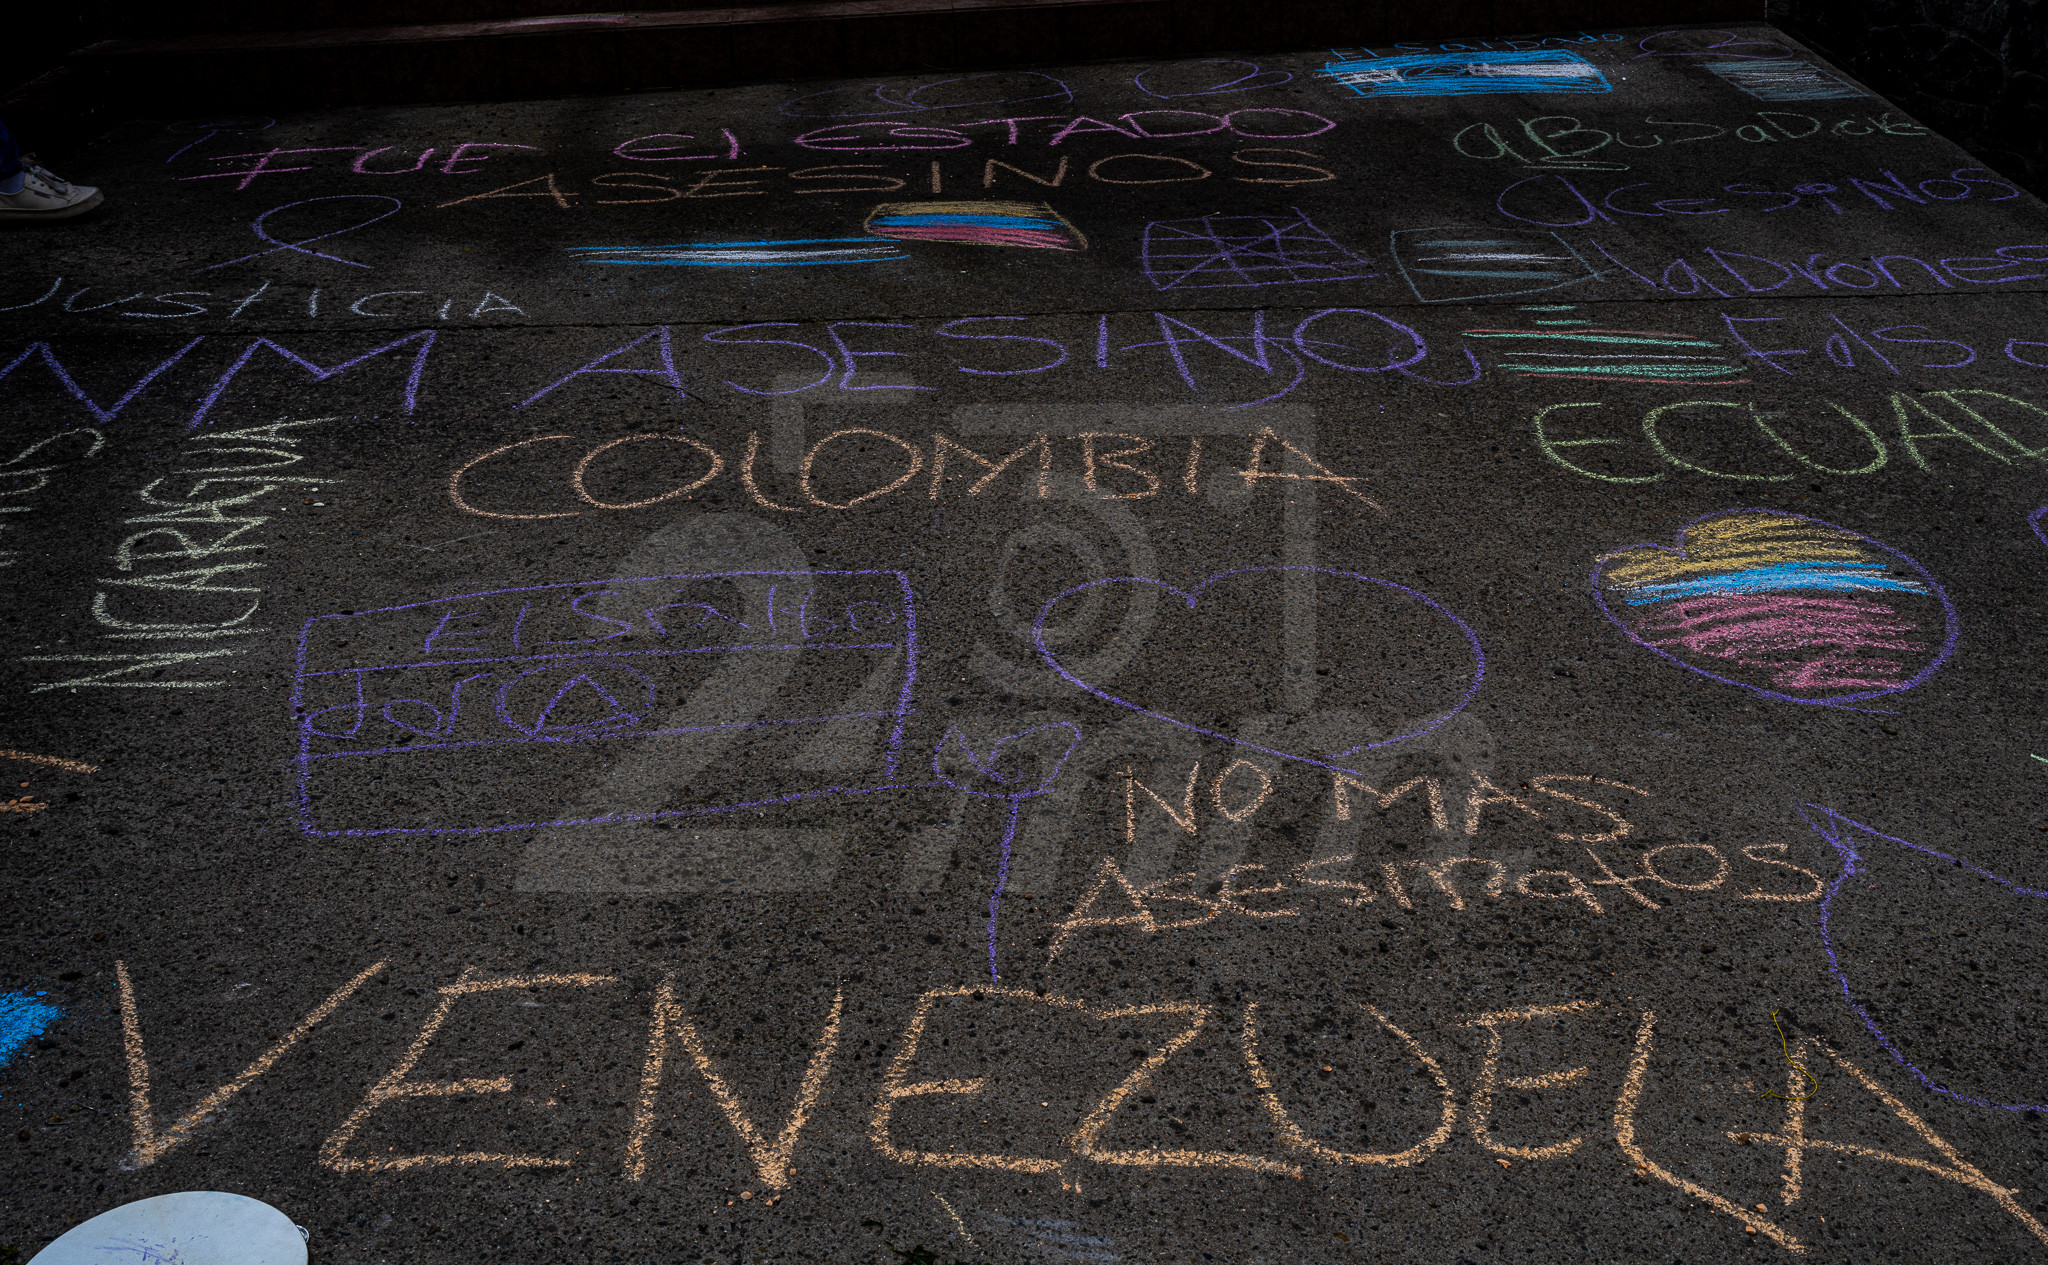 El Salbado
FUE El ESTADO
ASESINOS
aBuSaDores
aCeSiNoS
laDrones
JUSTICIA
INM ASESINO
COLOMBIA
ECUAD
NICARAGUA
El Salba
dor
NO MAS
ASESinatOS
VENEZUELA